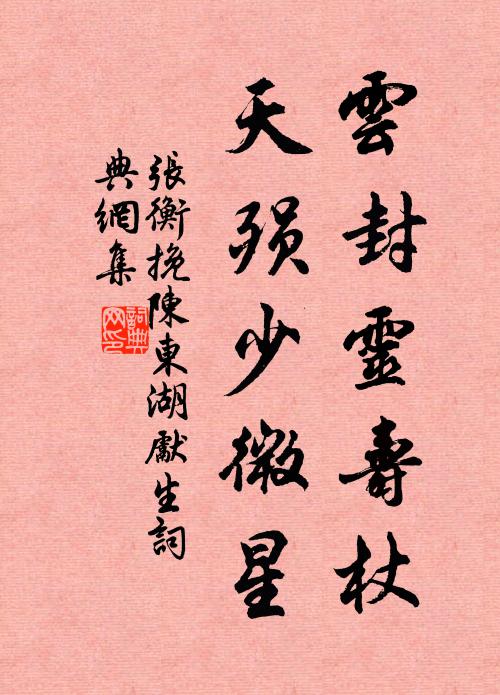 雲封靈壽杖
天殞少微星
張衡挽陳東湖獻生詞
典網集
詞典
网印